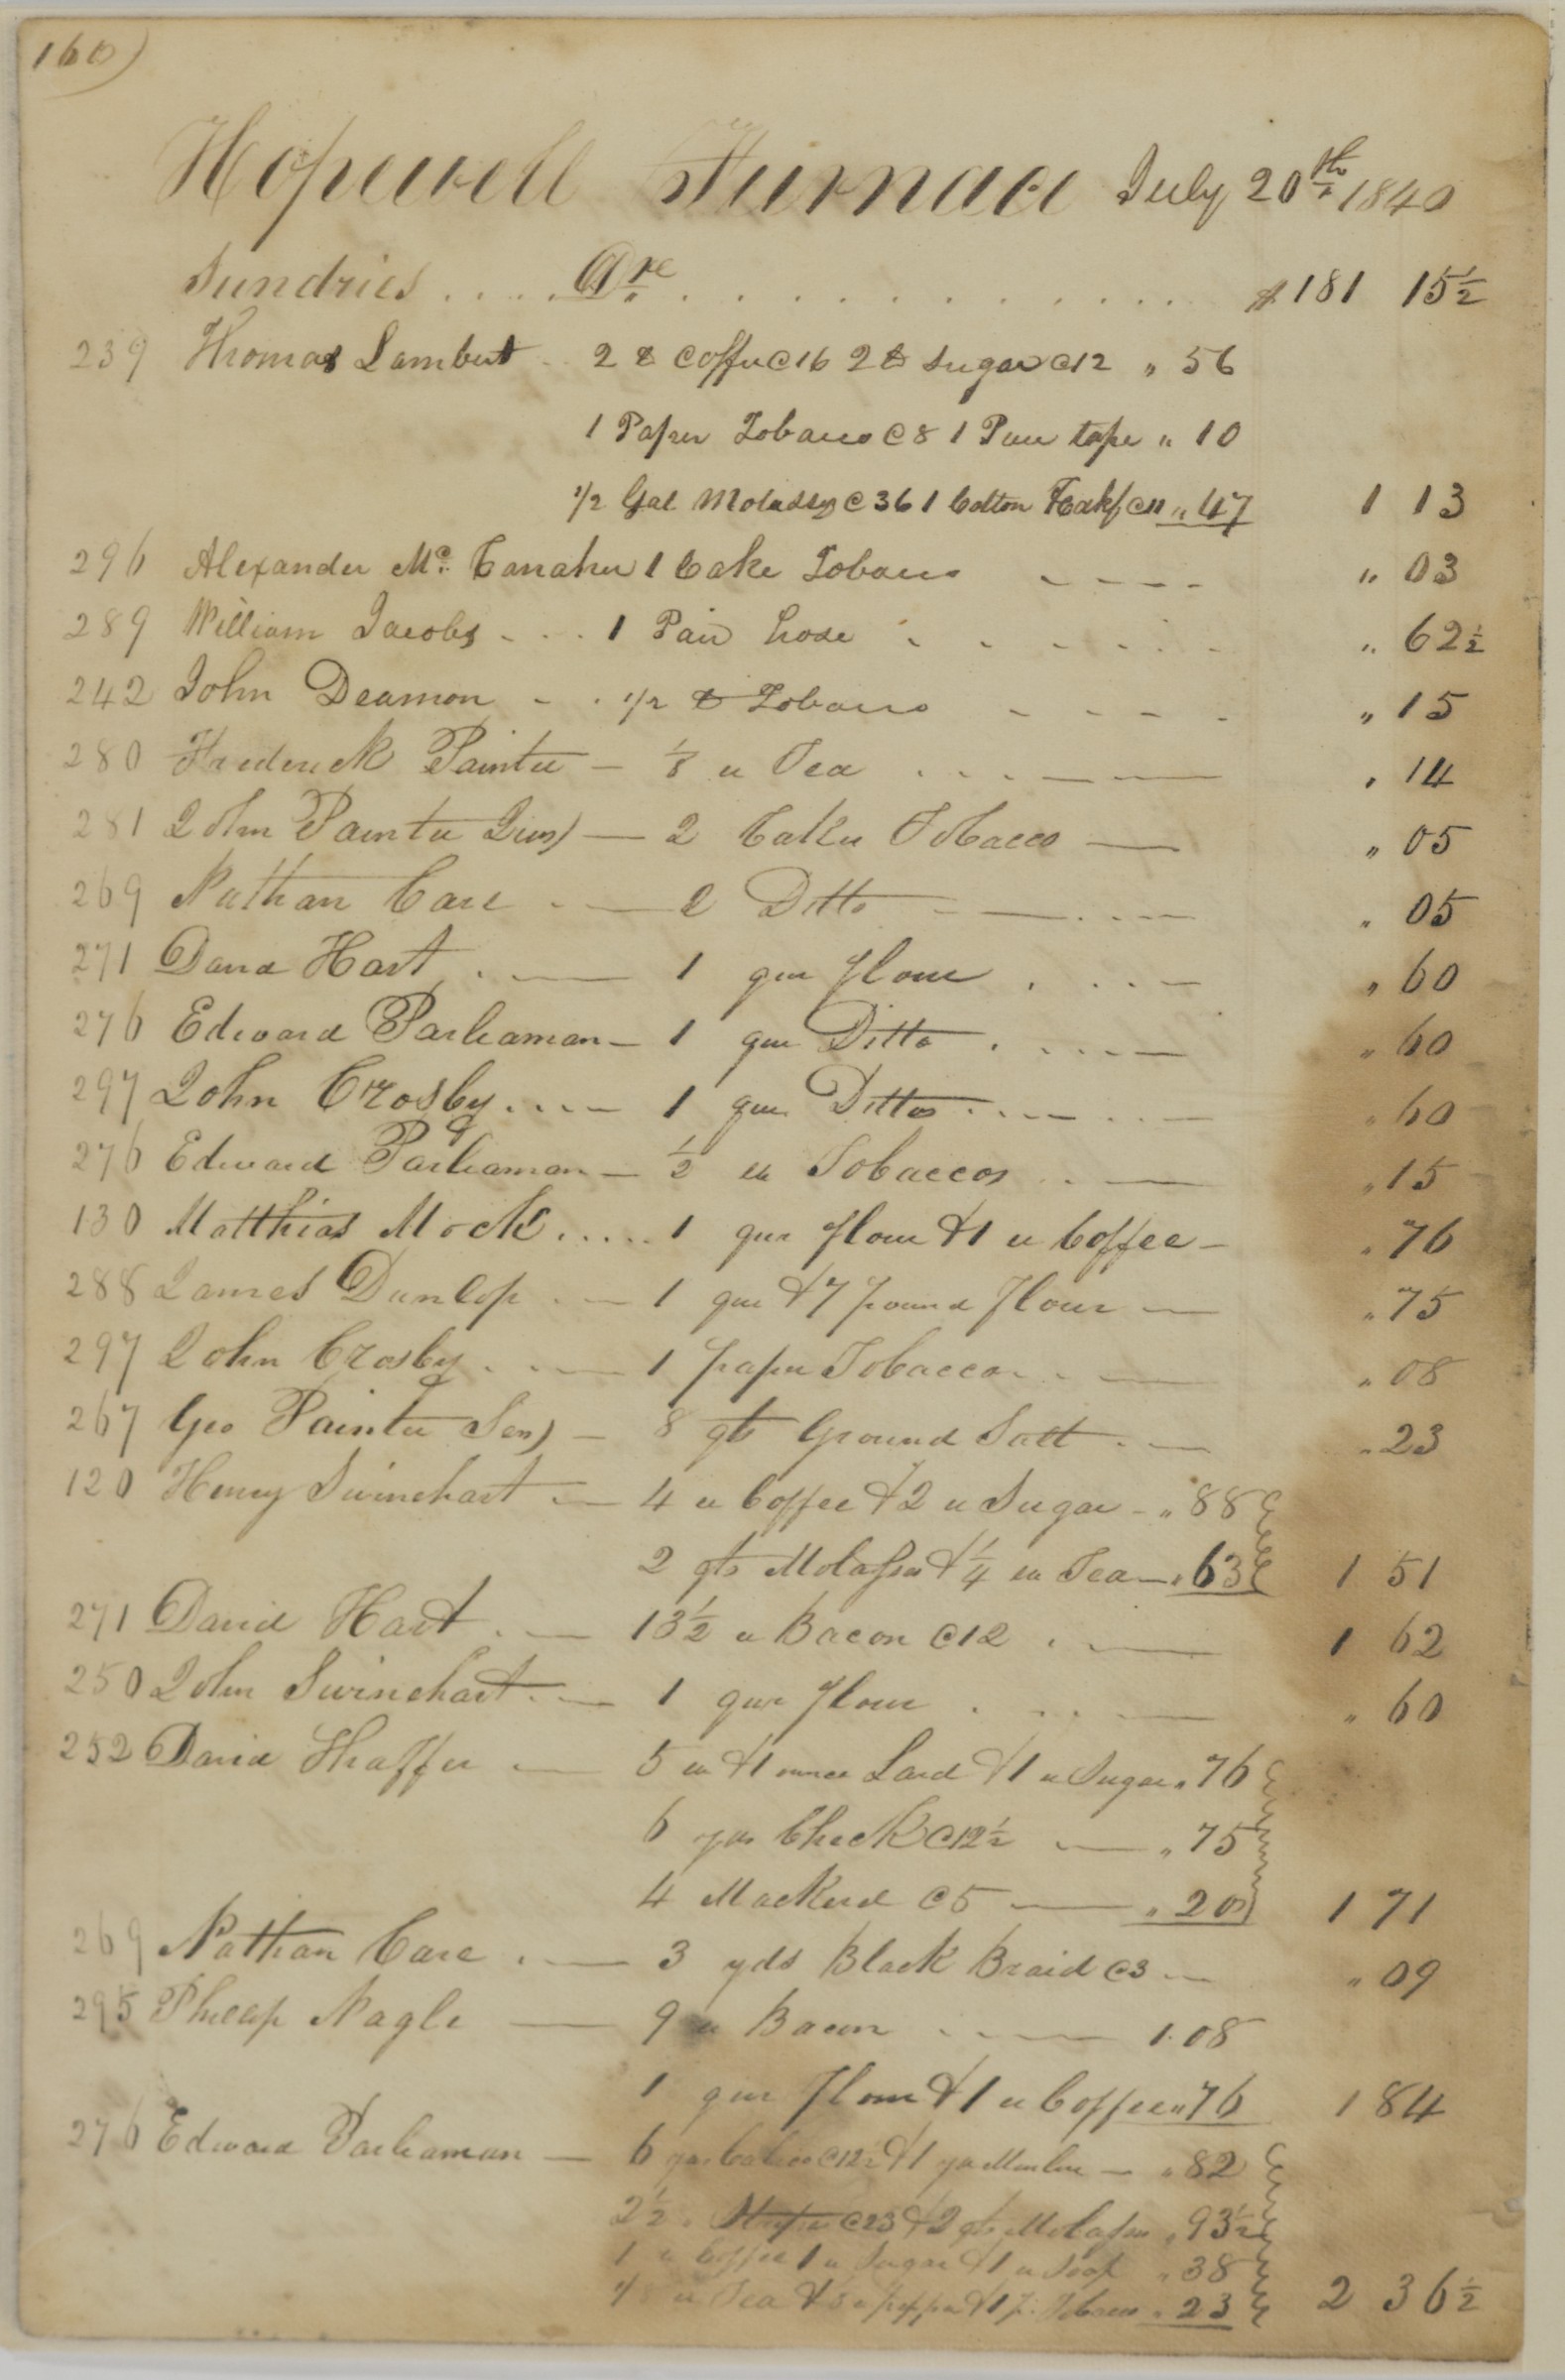 160)
Hopewell Furnace July 20th 1840
Sundries .... Dre ............ $181 15½
239 Thomas Lambert .. 2 ℔ Coffee @16 2 ℔ Sugar @12 " 56
1 Paper Tobacco @8 1 tape " 10
½ Gal Molasses @36 1 Cotton @11 " 47 1 13
296 Alexander Mc. 1 Cake Tobacco ---- " 03
289 William Jacobs - .. 1 Pair hose ...... " 62½
242 John Deamon - . 1/2 ℔ Tobacco ---- " 15
280 Frederick Painter - ⅛ " Tea ...-- " 14
281 John Painter Jun) - 2 Cakes Tobacco - " 05
269 Nathan Care . - 2 Ditto - -..- " 05
271 David Hart . - 1 qur flour . ..- " 60
276 Edward Parliaman - 1 qur Ditto . ...- " 60
297 John Crosby ...- 1 qur Ditto ...- .. - " 60
276 Edward Parliaman - ½ " Tobacco .. - " 15
130 Matthias Mock ..... 1 qur flour & 1 " Coffee - " 76
288 James Dunlop . - 1 qur & 7 pound flour - " 75
297 John Crosby . .- 1 paper Tobacco .. - " 08
267 Geo Painter Sen) - 8 qts Ground Salt . - " 23
120 Henry Swinehart - 4 " Coffee & 2 " Sugar - " 88
2 qts Molasses & ¼ " Tea - " 63 1 51
271 David Hart . - 13½ " Bacon @12 . - 1 62
250 John Swinehart . - 1 qur flour . ..- " 60
252 David Shaffer - 5 " & 1 ounce Lard & 1 " Sugar " 76
6 yds Check @12½ - " 75
4 Mackerel @5 - " 20 1 71
269 Nathan Care . - 3 yds Black Braid @3 - " 09
295 Philip Nagle - 9 " Bacon ..- 1.08
1 qur Flour & 1 " Coffee " 76 1 84
276 Edward Parliaman - 6 yds Calico @12½ & 1 yd Muslin - " 82
2½ " @23 & 2 qts Molasses " 93½
1 " Coffee 1 " Sugar & 1 " Soap " 38
" Tea & " pepper & 1 p. Tobacco " 23 2 36½